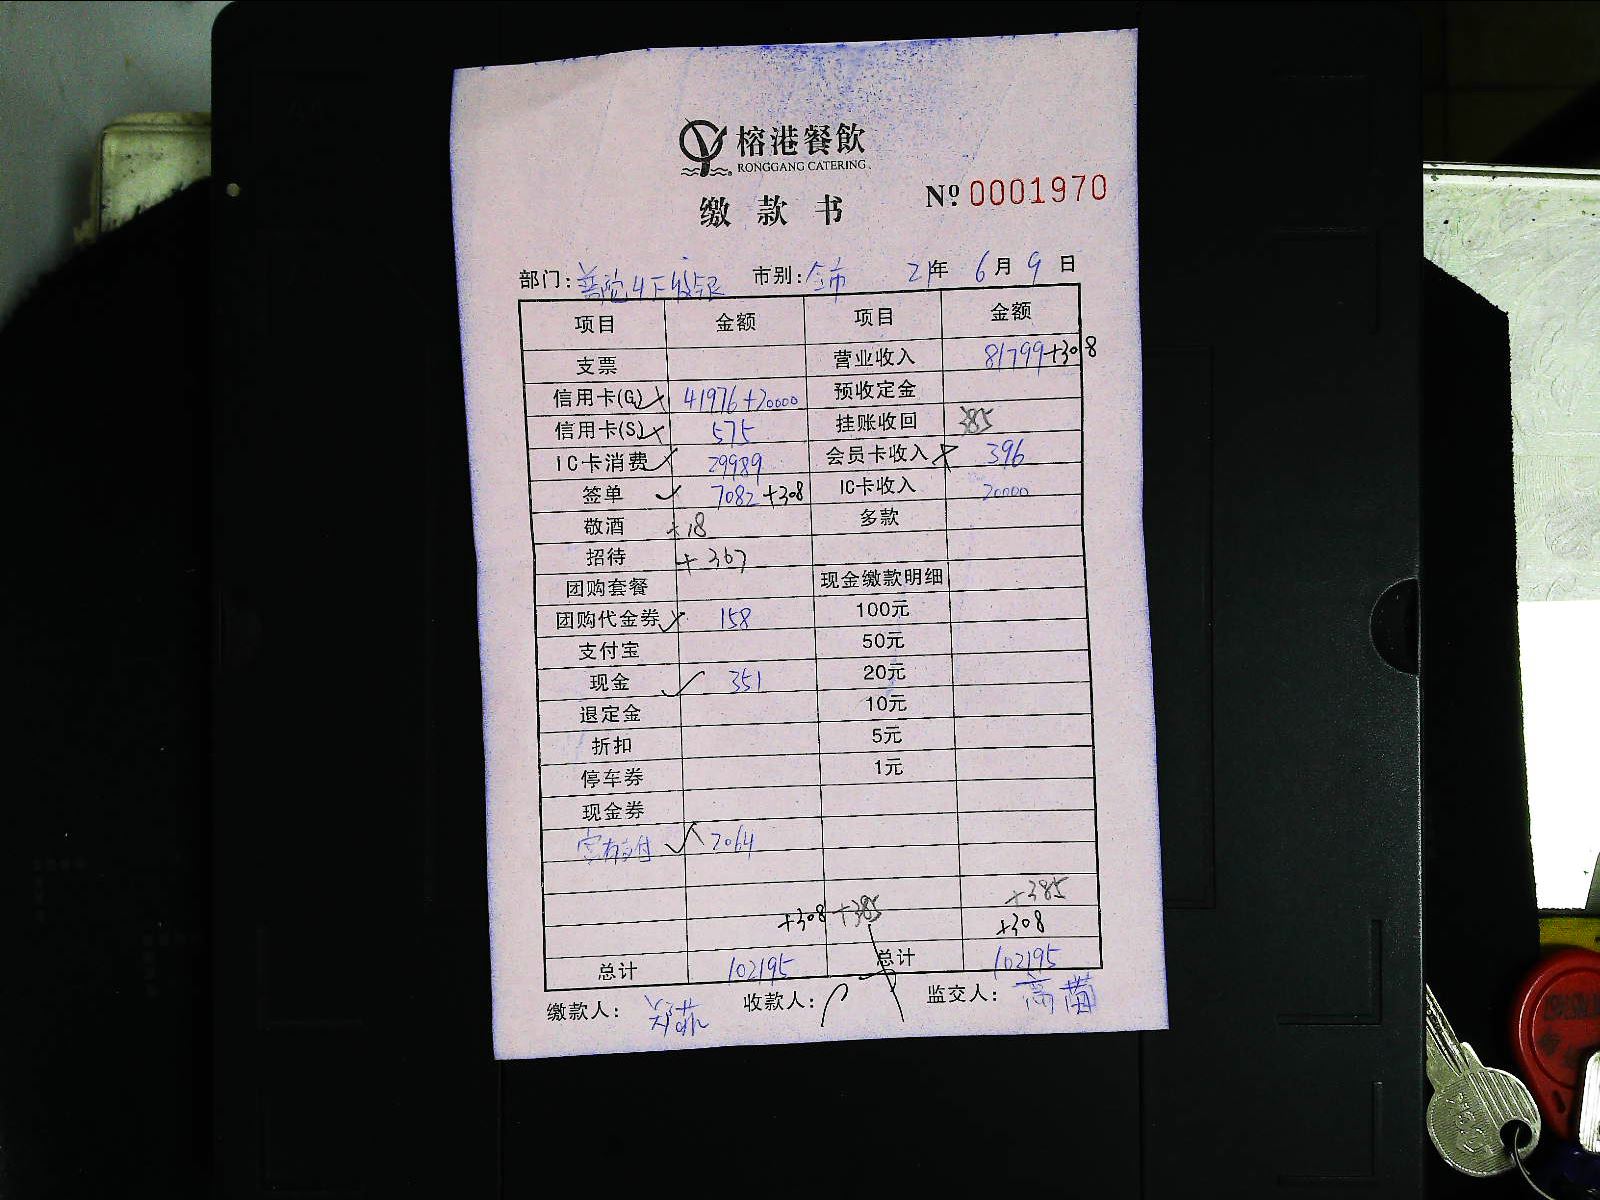 榕港餐飲
RONGGANG CATERING
缴款书
Nº 0001970
部门: 市别:全市 21年 6月 9日
项目 金额 项目 金额
支票 营业收入 81799+308
信用卡(G) 41976+20000 预收定金
信用卡(S) 575 挂账收回 385
IC卡消费 29989 会员卡收入 396
签单 7082+308 IC卡收入 20000
敬酒 +18 多款
招待 +367
团购套餐 现金缴款明细
团购代金券 158 100元
支付宝 50元
现金 351 20元
退定金 10元
折扣 5元
停车券 1元
现金券
2064
+385
+308 +385 +308
总计 102195 总计 102195
缴款人: 收款人: 监交人: